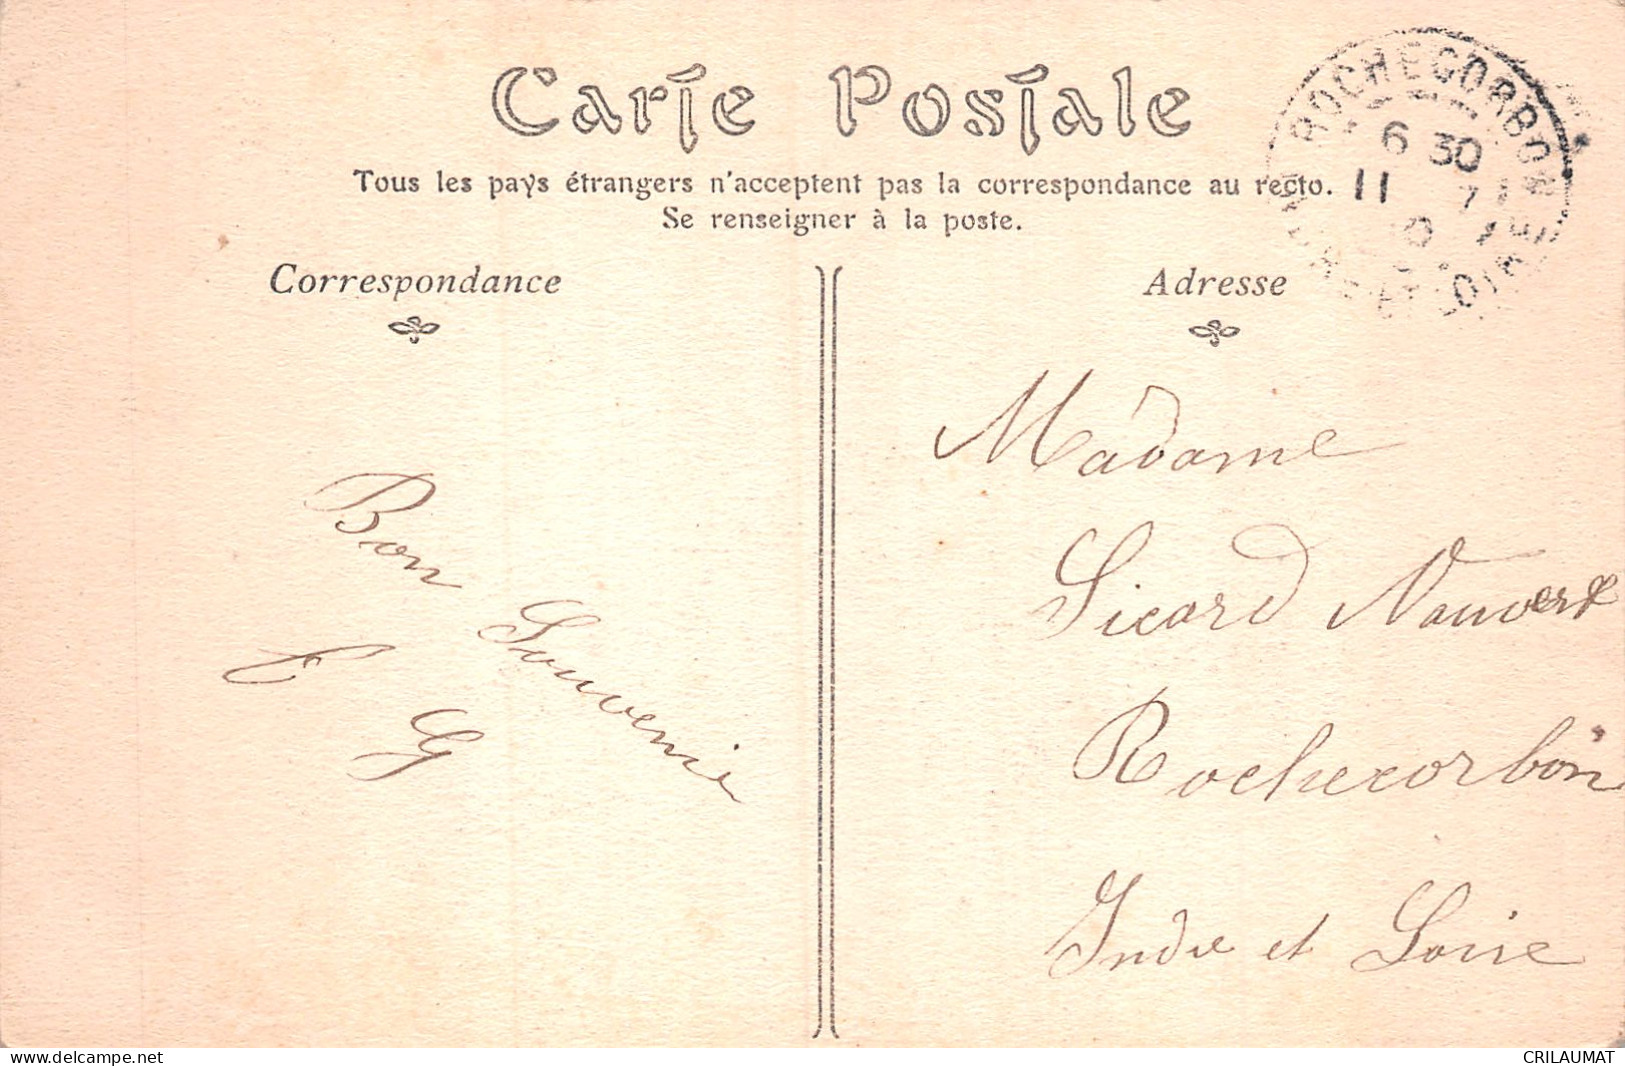 Carte Postale
Tous les pays étrangers n'acceptent pas la correspondance au recto.
Se renseigner à la poste.
Correspondance
Adresse
ROCHECORBON
6 30
11 7
INDRE ET LOIRE
Bon Souvenir
E G
Madame
Sicard Nauvert
Rochecorbon
Indre et Loire
www.delcampe.net
CRILAUMAT